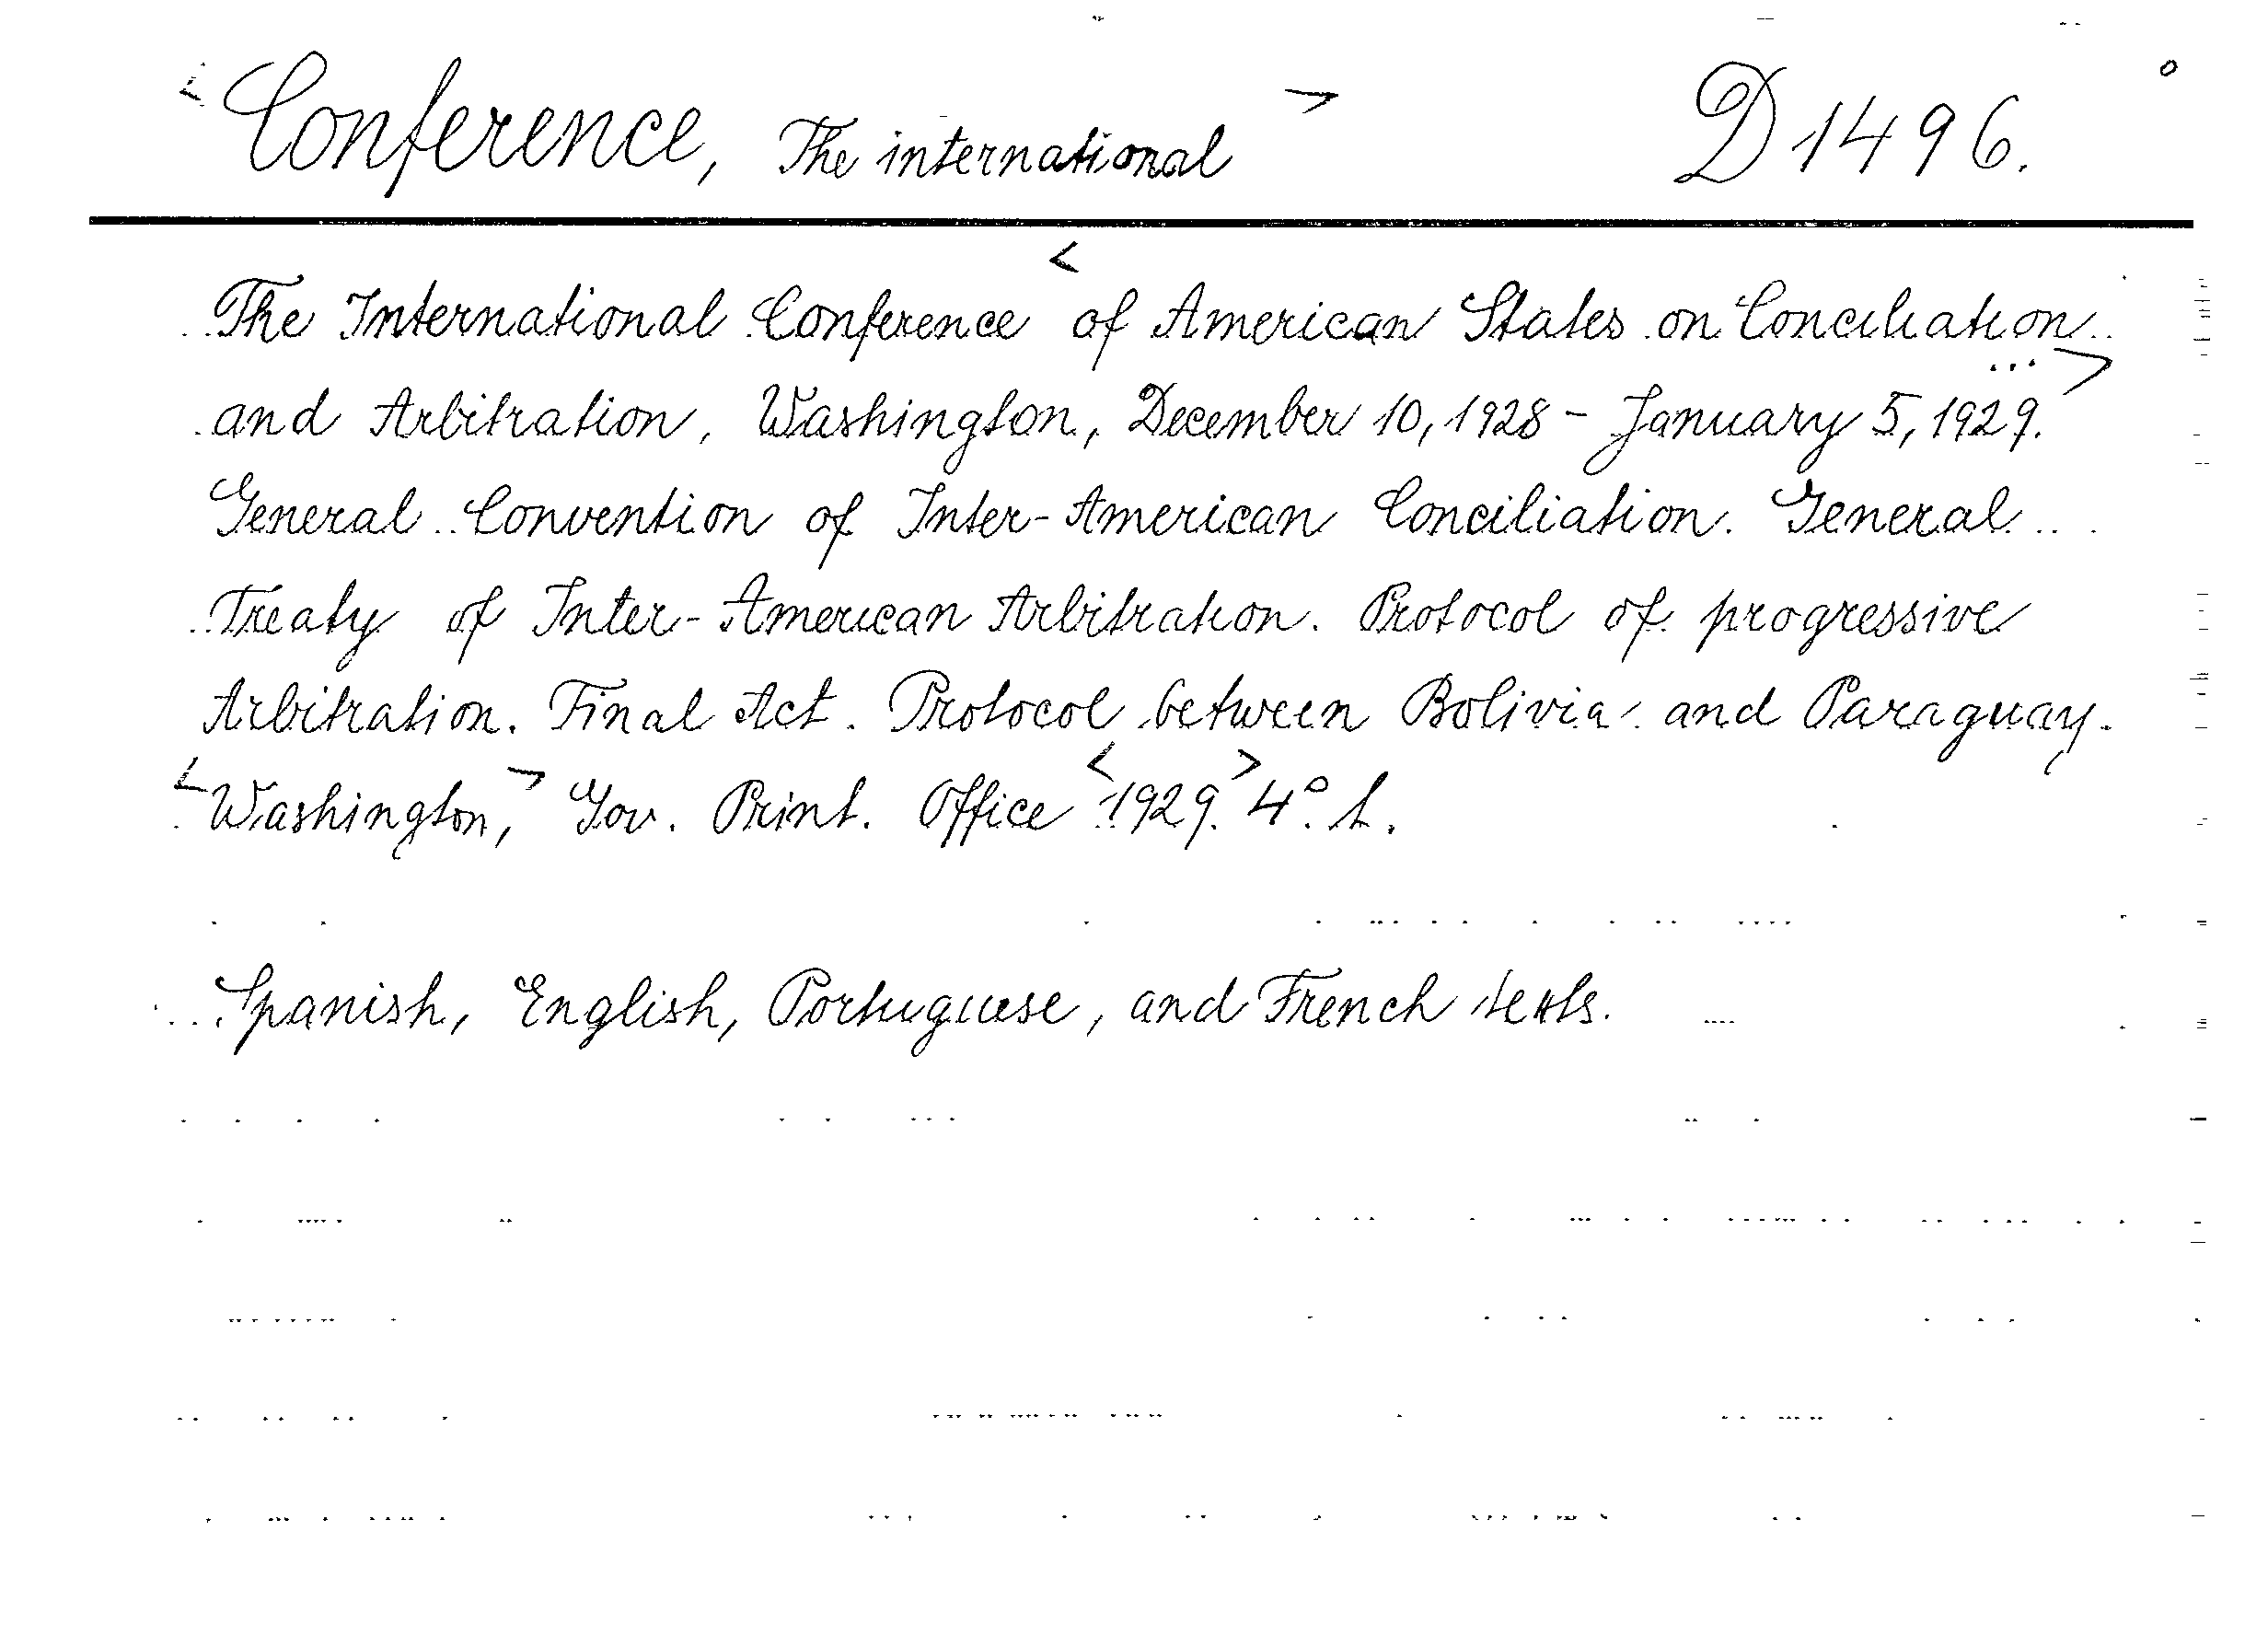 <Conference, The international> D 1496.
The International Conference <of American States on Conciliation
and Arbitration, Washington, December 10, 1928 - January 5, 1929. ...>
General Convention of Inter-American Conciliation. General
Treaty of Inter-American Arbitration. Protocol of progressive
Arbitration. Final Act. Protocol between Bolivia and Paraguay.
<Washington,> Gov. Print. Office <1929.> 4°.
Spanish, English, Portuguese, and French texts.